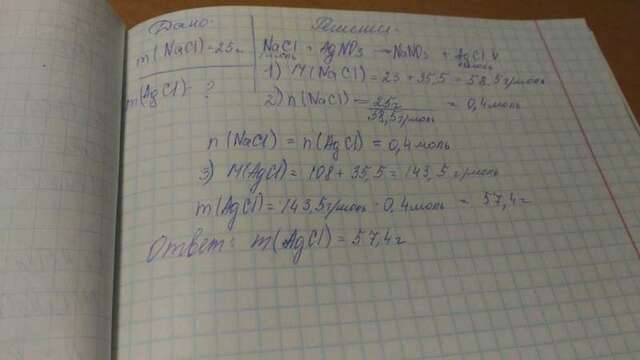 Дано: Решение:
m(NaCl)=25г
NaCl + AgNO3 → NaNO3 + AgCl↓
1моль 1моль
m(AgCl)-?
1) M(NaCl)=23+35,5=58,5г/моль
2) n(NaCl)=25г/58,5г/моль = 0,4моль
n(NaCl) = n(AgCl) = 0,4моль
3) M(AgCl)=108+35,5=143,5г/моль
m(AgCl)=143,5г/моль · 0,4моль = 57,4г
Ответ: m(AgCl)=57,4г